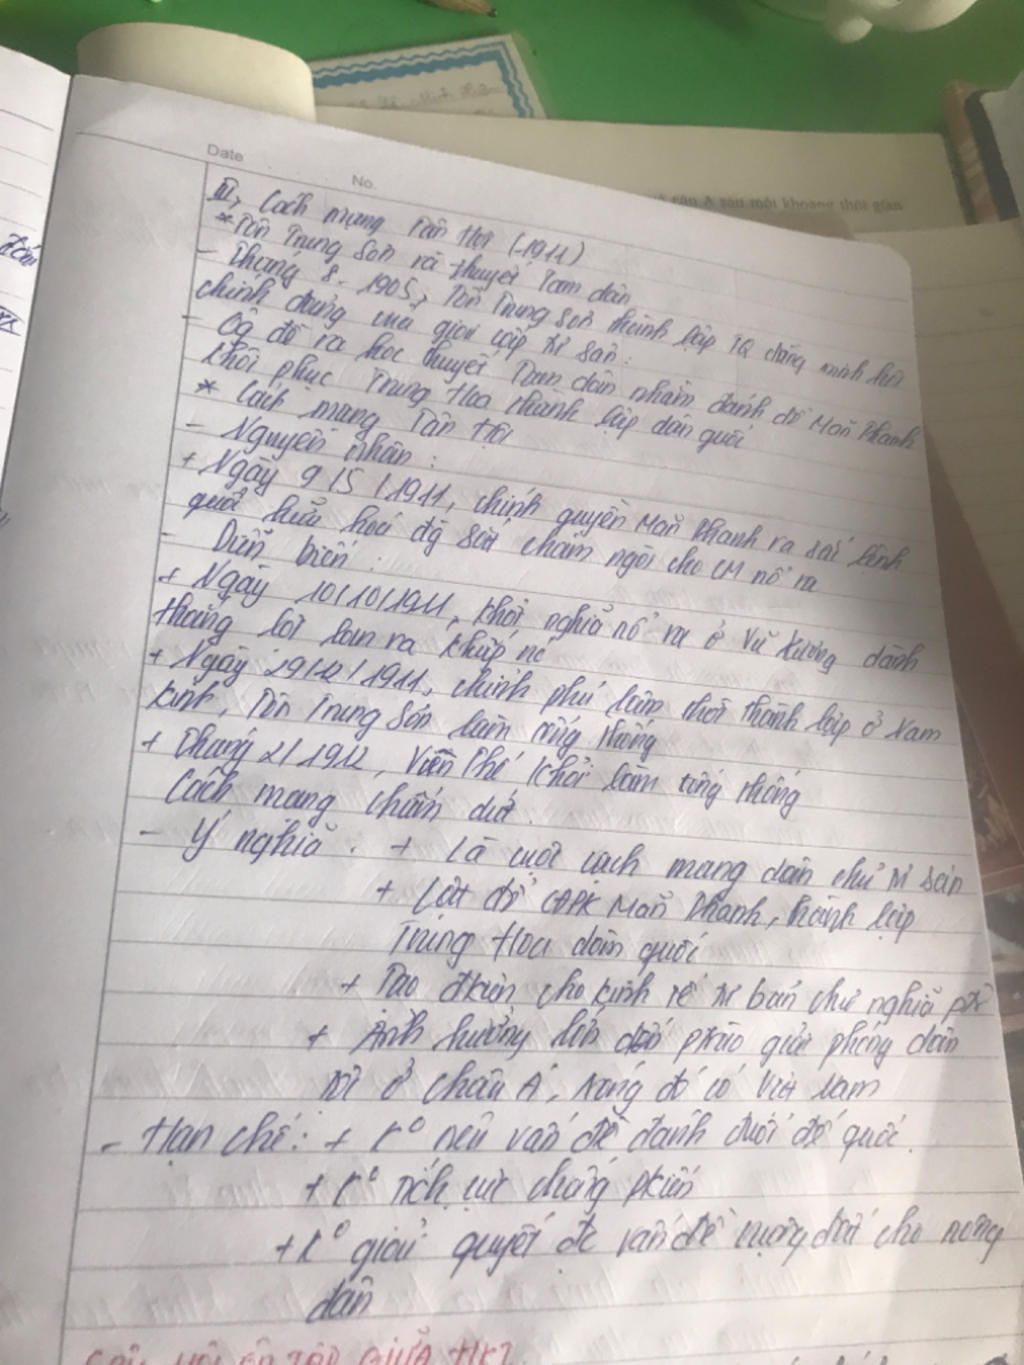 Date
No.
III, Cách mạng Tân Hợi (-1911)
* Tôn Trung Sơn và thuyết Tam dân
- Tháng 8-1905, Tôn Trung Sơn thành lập TQ đồng minh hội
chính đảng của giai cấp tư sản.
- Ông đề ra học thuyết Tam dân nhằm đánh đổ Mãn Thanh
khôi phục Trung Hoa thành lập dân quốc
* Cách mạng Tân Hợi
- Nguyên nhân:
+ Ngày 9/5/1911, chính quyền Mãn Thanh ra sắc lệnh
quốc hữu hoá đg sắt châm ngòi cho CM nổ ra
- Diễn biến:
+ Ngày 10/10/1911, khởi nghĩa nổ ra ở Vũ Xương dành
thắng lợi lan ra khắp nơi
+ Ngày 29/12/1911, chính phủ lâm thời thành lập ở Nam
Kinh, Tôn Trung Sơn làm tổng thống
+ Tháng 2/1912, Viên Thế Khải làm tổng thống
Cách mạng chấm dứt.
- Ý nghĩa. + Là cuộc cách mạng dân chủ tư sản
+ Lật đổ CĐPK Mãn Thanh, thành lập
Trung Hoa dân quốc
+ Tạo đkiện cho kinh tế tư bản chủ nghĩa ptr
+ Ảnh hưởng lớn đến ptrào giải phóng dân
tộc ở châu Á, trong đó có Việt Nam
- Hạn chế: + K° nêu vấn đề đánh đuổi đế quốc.
+ K° tích cực chống pkiến
+ K° giải quyết đc vấn đề ruộng đất cho nông
dân
CÂU HỎI ÔN TẬP GIỮA HK1
sau một khoảng thời gian